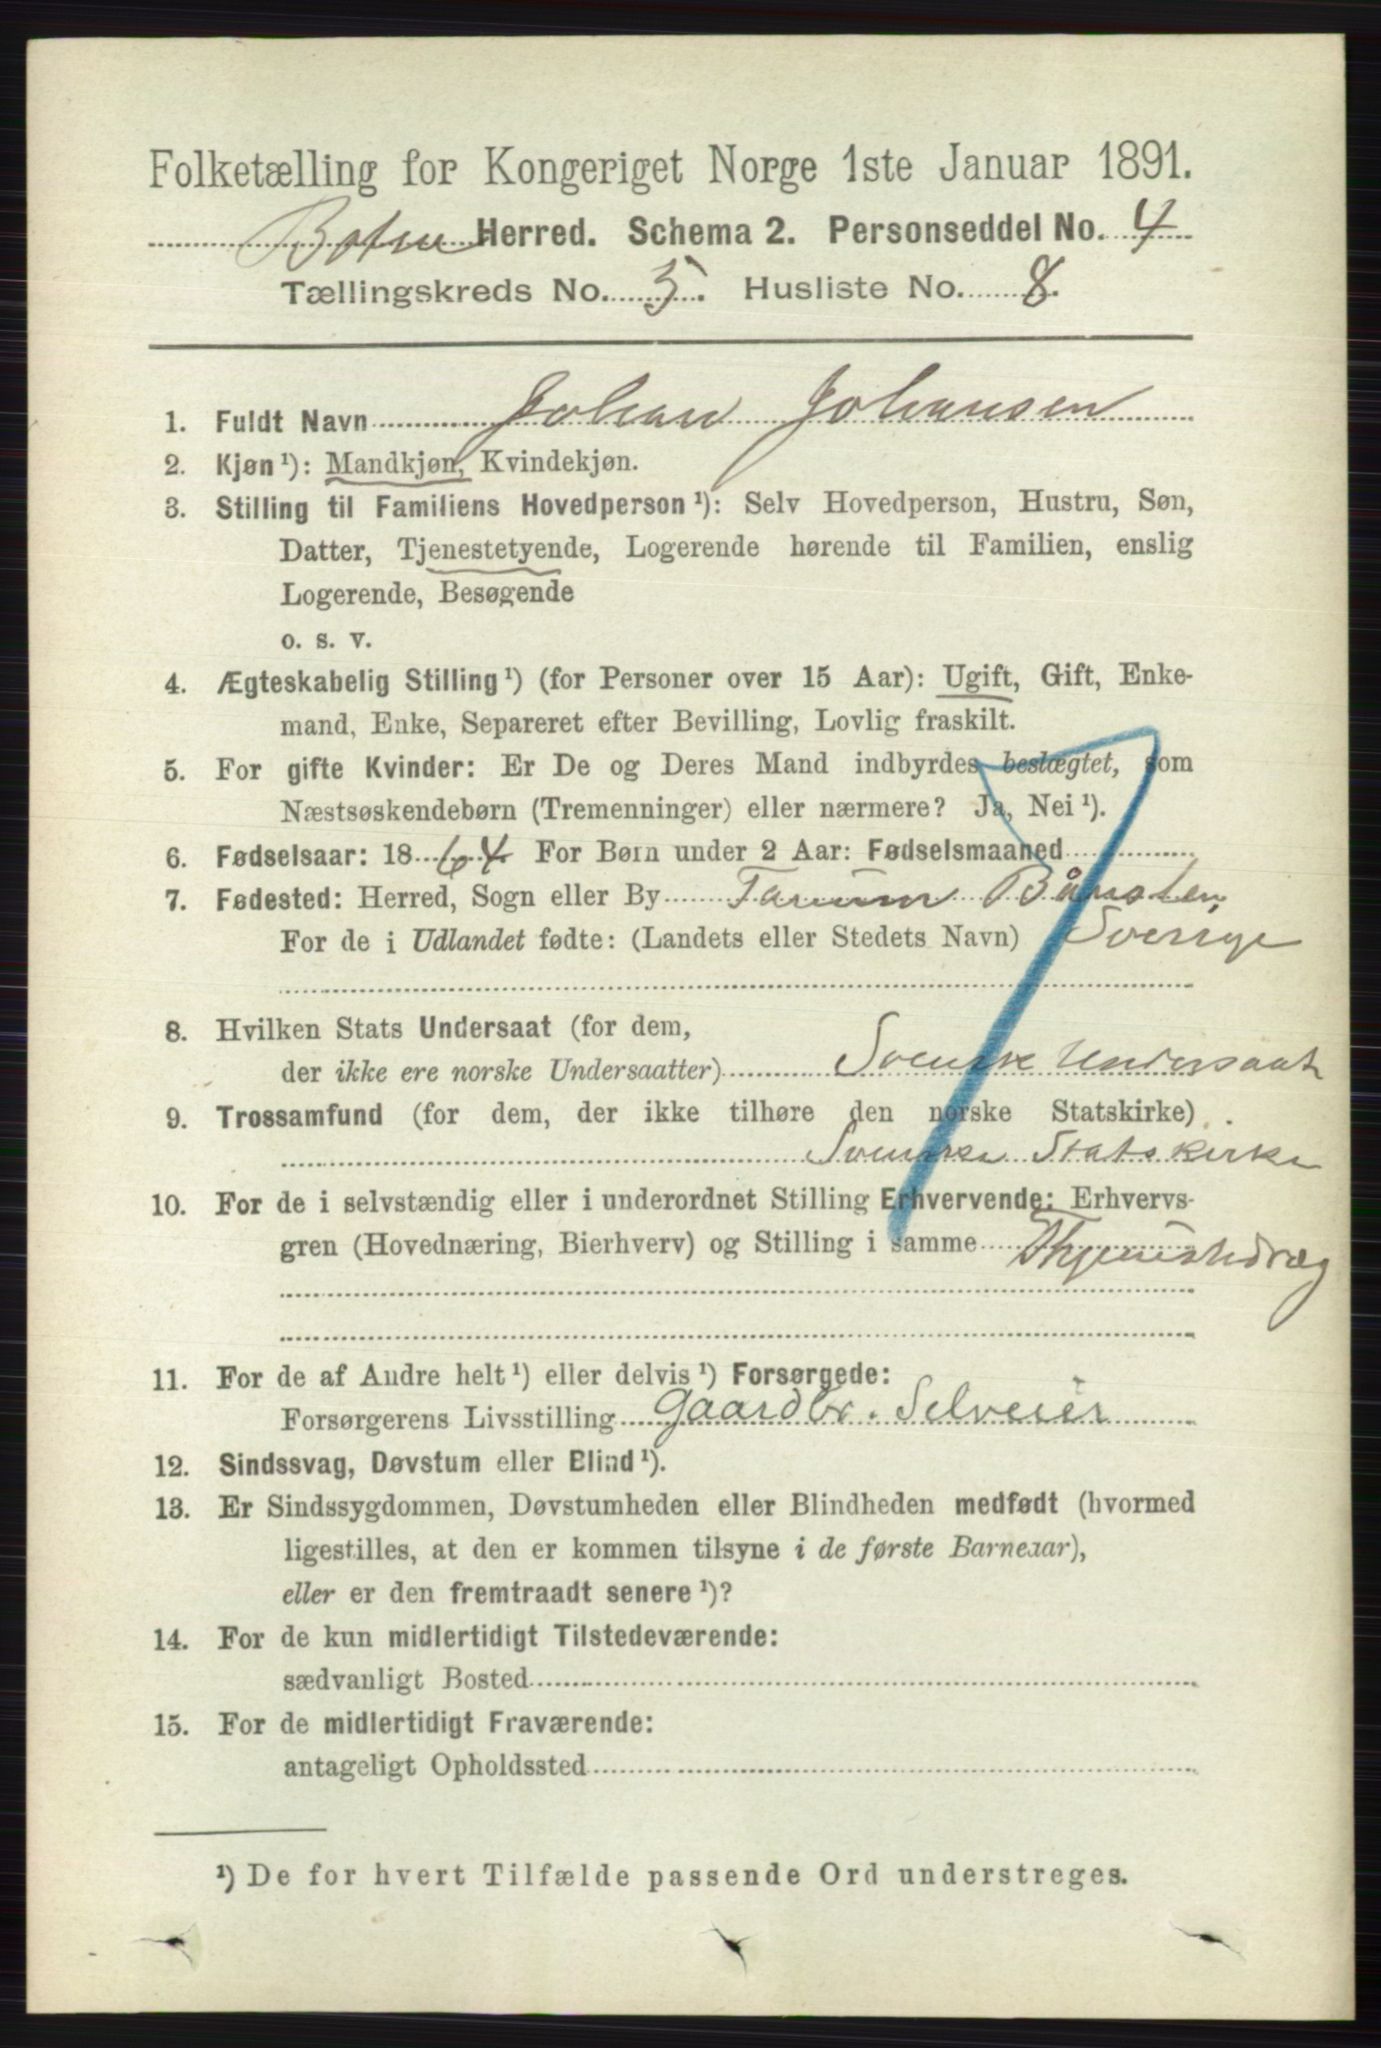 Folketælling for Kongeriget Norge 1ste Januar 1891.
Botne Herred. Schema 2. Personseddel No. 4
Tællingskreds No. 5. Husliste No. 8.
1. Fuldt Navn Johan Johansen
2. Kjøn¹): Mandkjøn, Kvindekjøn.
3. Stilling til Familiens Hovedperson¹): Selv Hovedperson, Hustru, Søn,
Datter, Tjenestetyende, Logerende hørende til Familien, enslig
Logerende, Besøgende
o. s. v.
4. Ægteskabelig Stilling¹) (for Personer over 15 Aar): Ugift, Gift, Enke-
mand, Enke, Separeret efter Bevilling, Lovlig fraskilt.
5. For gifte Kvinder: Er De og Deres Mand indbyrdes beslægtet, som
Næstsøskendebørn (Tremenninger) eller nærmere? Ja, Nei¹).
6. Fødselsaar: 1864 For Børn under 2 Aar: Fødselsmaaned
7. Fødested: Herred, Sogn eller By Tanum
For de i Udlandet fødte: (Landets eller Stedets Navn) Sverige
8. Hvilken Stats Undersaat (for dem,
der ikke ere norske Undersaatter) Svensk Undersaat
9. Trossamfund (for dem, der ikke tilhøre den norske Statskirke)
Svenske Statskirke
10. For de i selvstændig eller i underordnet Stilling Erhvervende: Erhvervs-
gren (Hovednæring, Bierhverv) og Stilling i samme Thjenestedræg
11. For de af Andre helt¹) eller delvis¹) Forsørgede:
Forsørgerens Livsstilling Gaardbr. Selveier
12. Sindssvag, Døvstum eller Blind¹).
13. Er Sindssygdommen, Døvstumheden eller Blindheden medfødt (hvormed
ligestilles, at den er kommen tilsyne i de første Barneaar),
eller er den fremtraadt senere¹)?
14. For de kun midlertidigt Tilstedeværende:
sædvanligt Bosted
15. For de midlertidigt Fraværende:
antageligt Opholdssted
¹) De for hvert Tilfælde passende Ord understreges.